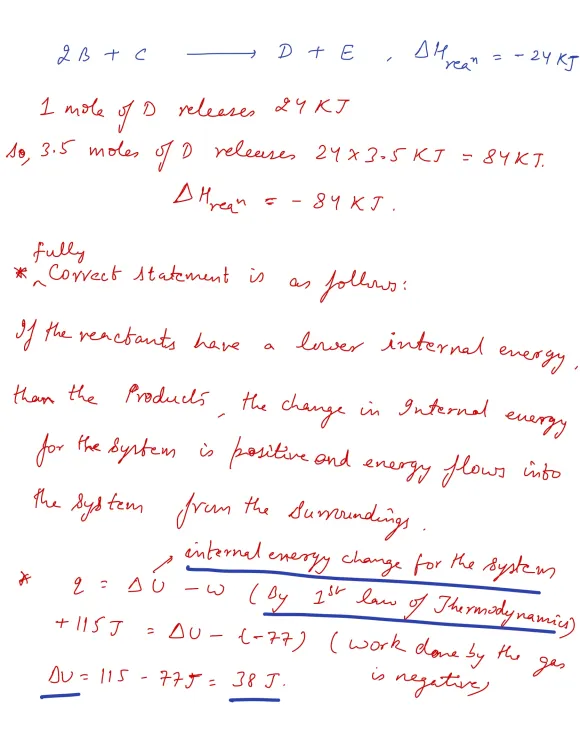 2B + C ⟶ D + E , ΔH_reaⁿ = - 24 KJ
1 mole of D releases 24 KJ
So, 3.5 moles of D releases 24 x 3.5 KJ = 84 KJ.
ΔH_reaⁿ = - 84 KJ.
* fully Correct statement is as follows:
If the reactants have a lower internal energy,
than the Products, the change in Internal energy
for the System is positive and energy flows into
the System from the Surroundings.
internal energy change for the system
* q = ΔU - w (By 1st law of Thermodynamics)
+ 115 J = ΔU - (-77) (work done by the gas
is negative)
ΔU = 115 - 77 J = 38 J.